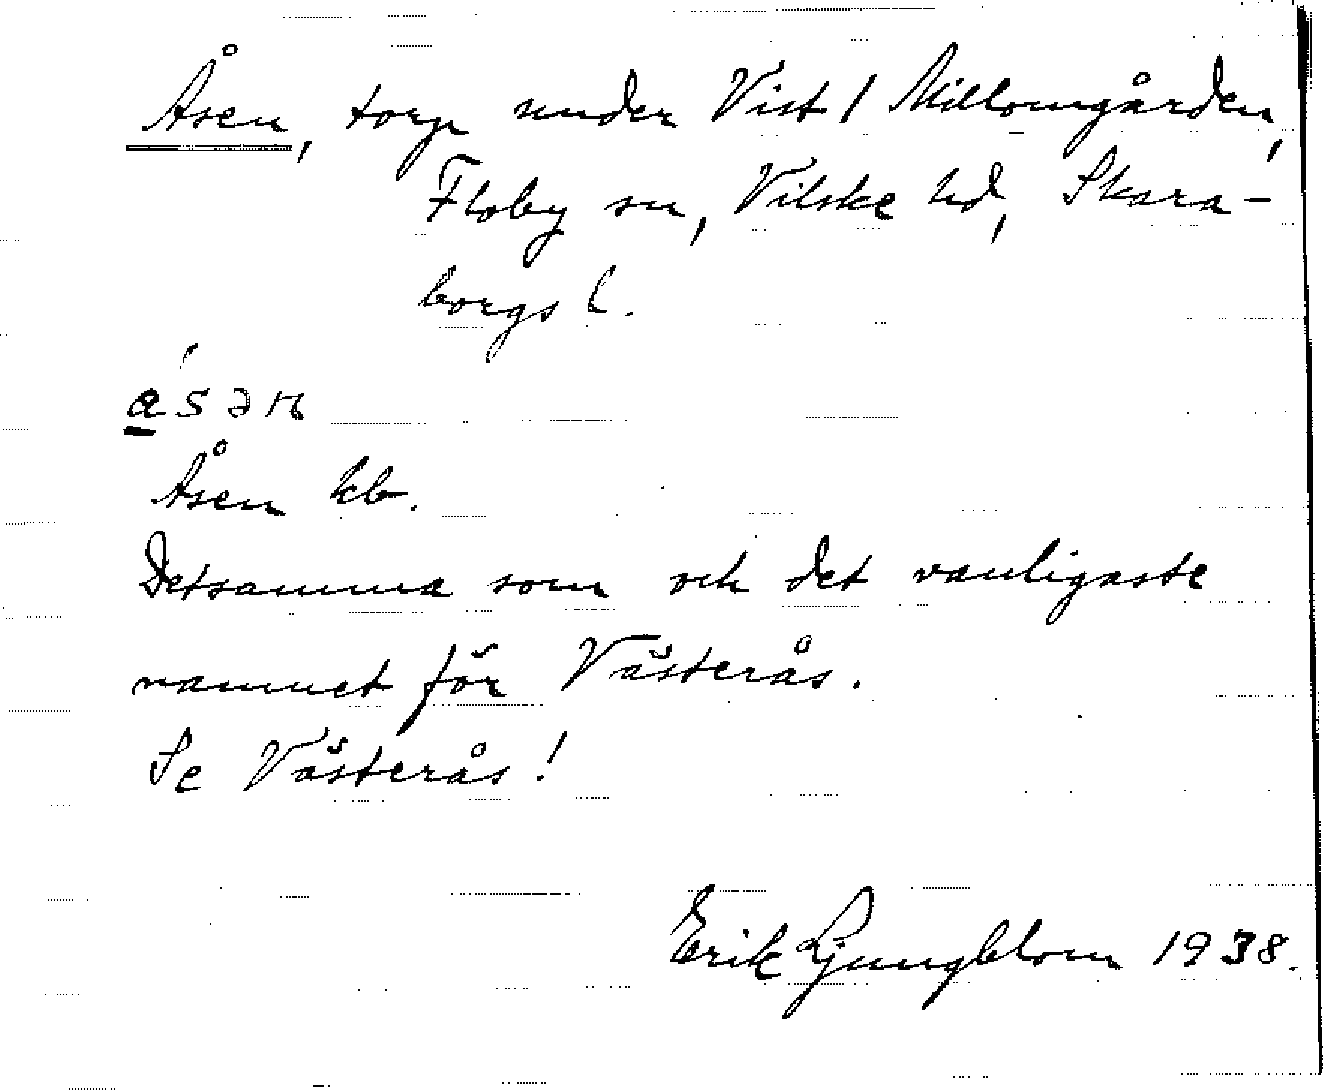 Åsen, torp under Vist 1 Mellomgården,
Floby sn, Vilske hd, Skara-
borgs l.
a̲´sən
Åsen kb.
Detsamma som och det vanligaste
namnet för Västerås.
Se Västerås!
Erik Ljungblom 1938.